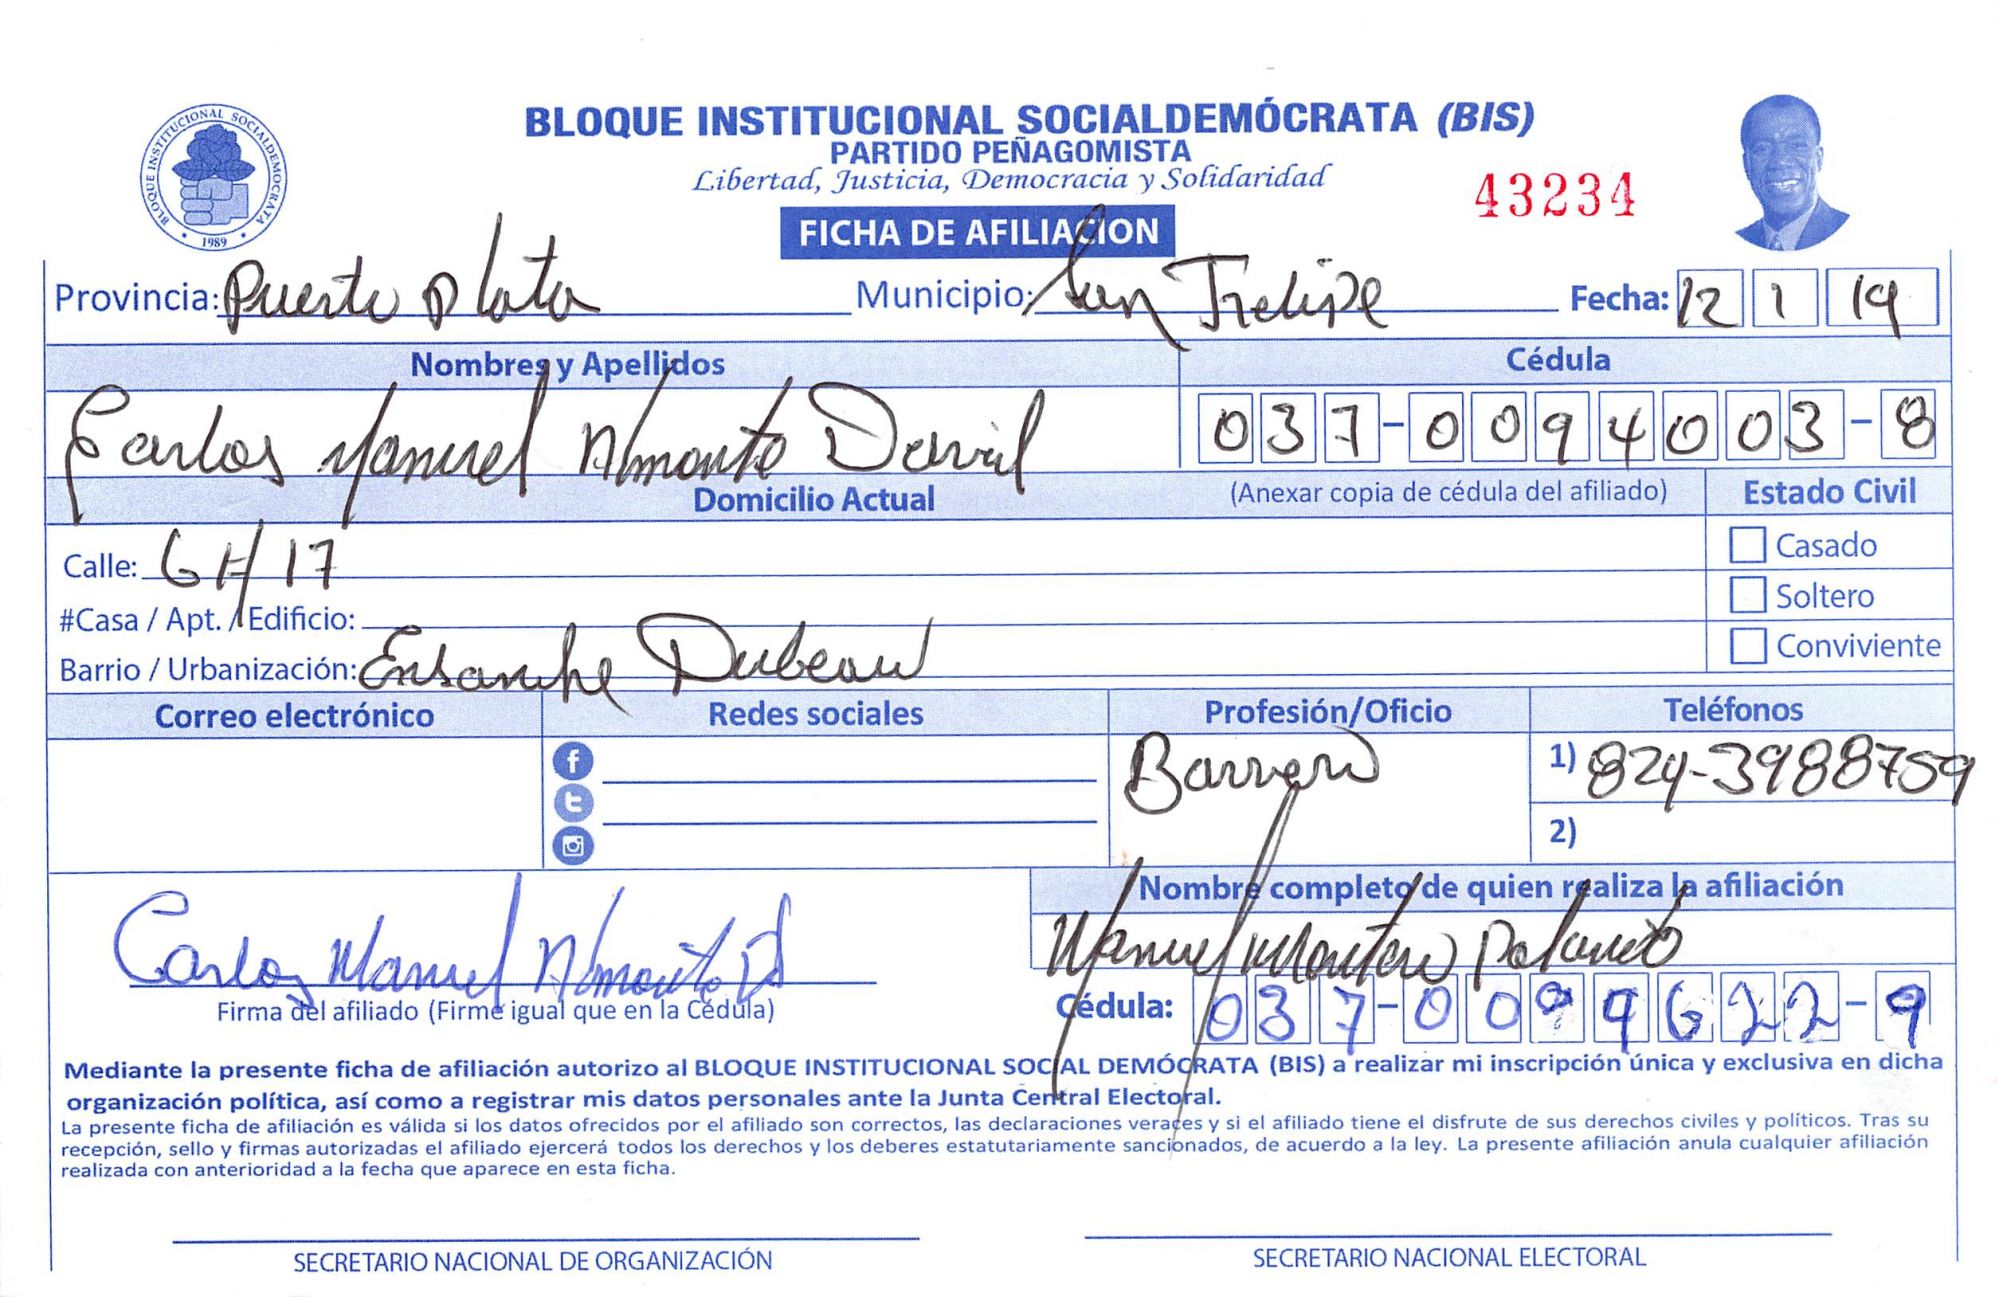 BLOQUE INSTITUCIONAL SOCIALDEMOCRATA
1989
BLOQUE INSTITUCIONAL SOCIALDEMÓCRATA (BIS)
PARTIDO PEÑAGOMISTA
Libertad, Justicia, Democracia y Solidaridad
43234
FICHA DE AFILIACION
Provincia: Puerto Plata Municipio: San Felipe Fecha: 12 1 19
Nombres y Apellidos Cédula
Carlos Manuel Almonte David 037-0094003-8
Domicilio Actual (Anexar copia de cédula del afiliado) Estado Civil
Calle: 6 # 17 Casado
#Casa / Apt. / Edificio: Soltero
Barrio / Urbanización: Ensanche Dubeau Conviviente
Correo electrónico Redes sociales Profesión/Oficio Teléfonos
Barrero 1) 824-3988759
2)
Nombre completo de quien realiza la afiliación
Carlos Manuel Almonte D Manuel
Firma del afiliado (Firme igual que en la Cédula) Cédula: 037-0099622-9
Mediante la presente ficha de afiliación autorizo al BLOQUE INSTITUCIONAL SOCIAL DEMÓCRATA (BIS) a realizar mi inscripción única y exclusiva en dicha
organización política, así como a registrar mis datos personales ante la Junta Central Electoral.
La presente ficha de afiliación es válida si los datos ofrecidos por el afiliado son correctos, las declaraciones veraces y si el afiliado tiene el disfrute de sus derechos civiles y políticos. Tras su
recepción, sello y firmas autorizadas el afiliado ejercerá todos los derechos y los deberes estatutariamente sancionados, de acuerdo a la ley. La presente afiliación anula cualquier afiliación
realizada con anterioridad a la fecha que aparece en esta ficha.
SECRETARIO NACIONAL DE ORGANIZACIÓN SECRETARIO NACIONAL ELECTORAL